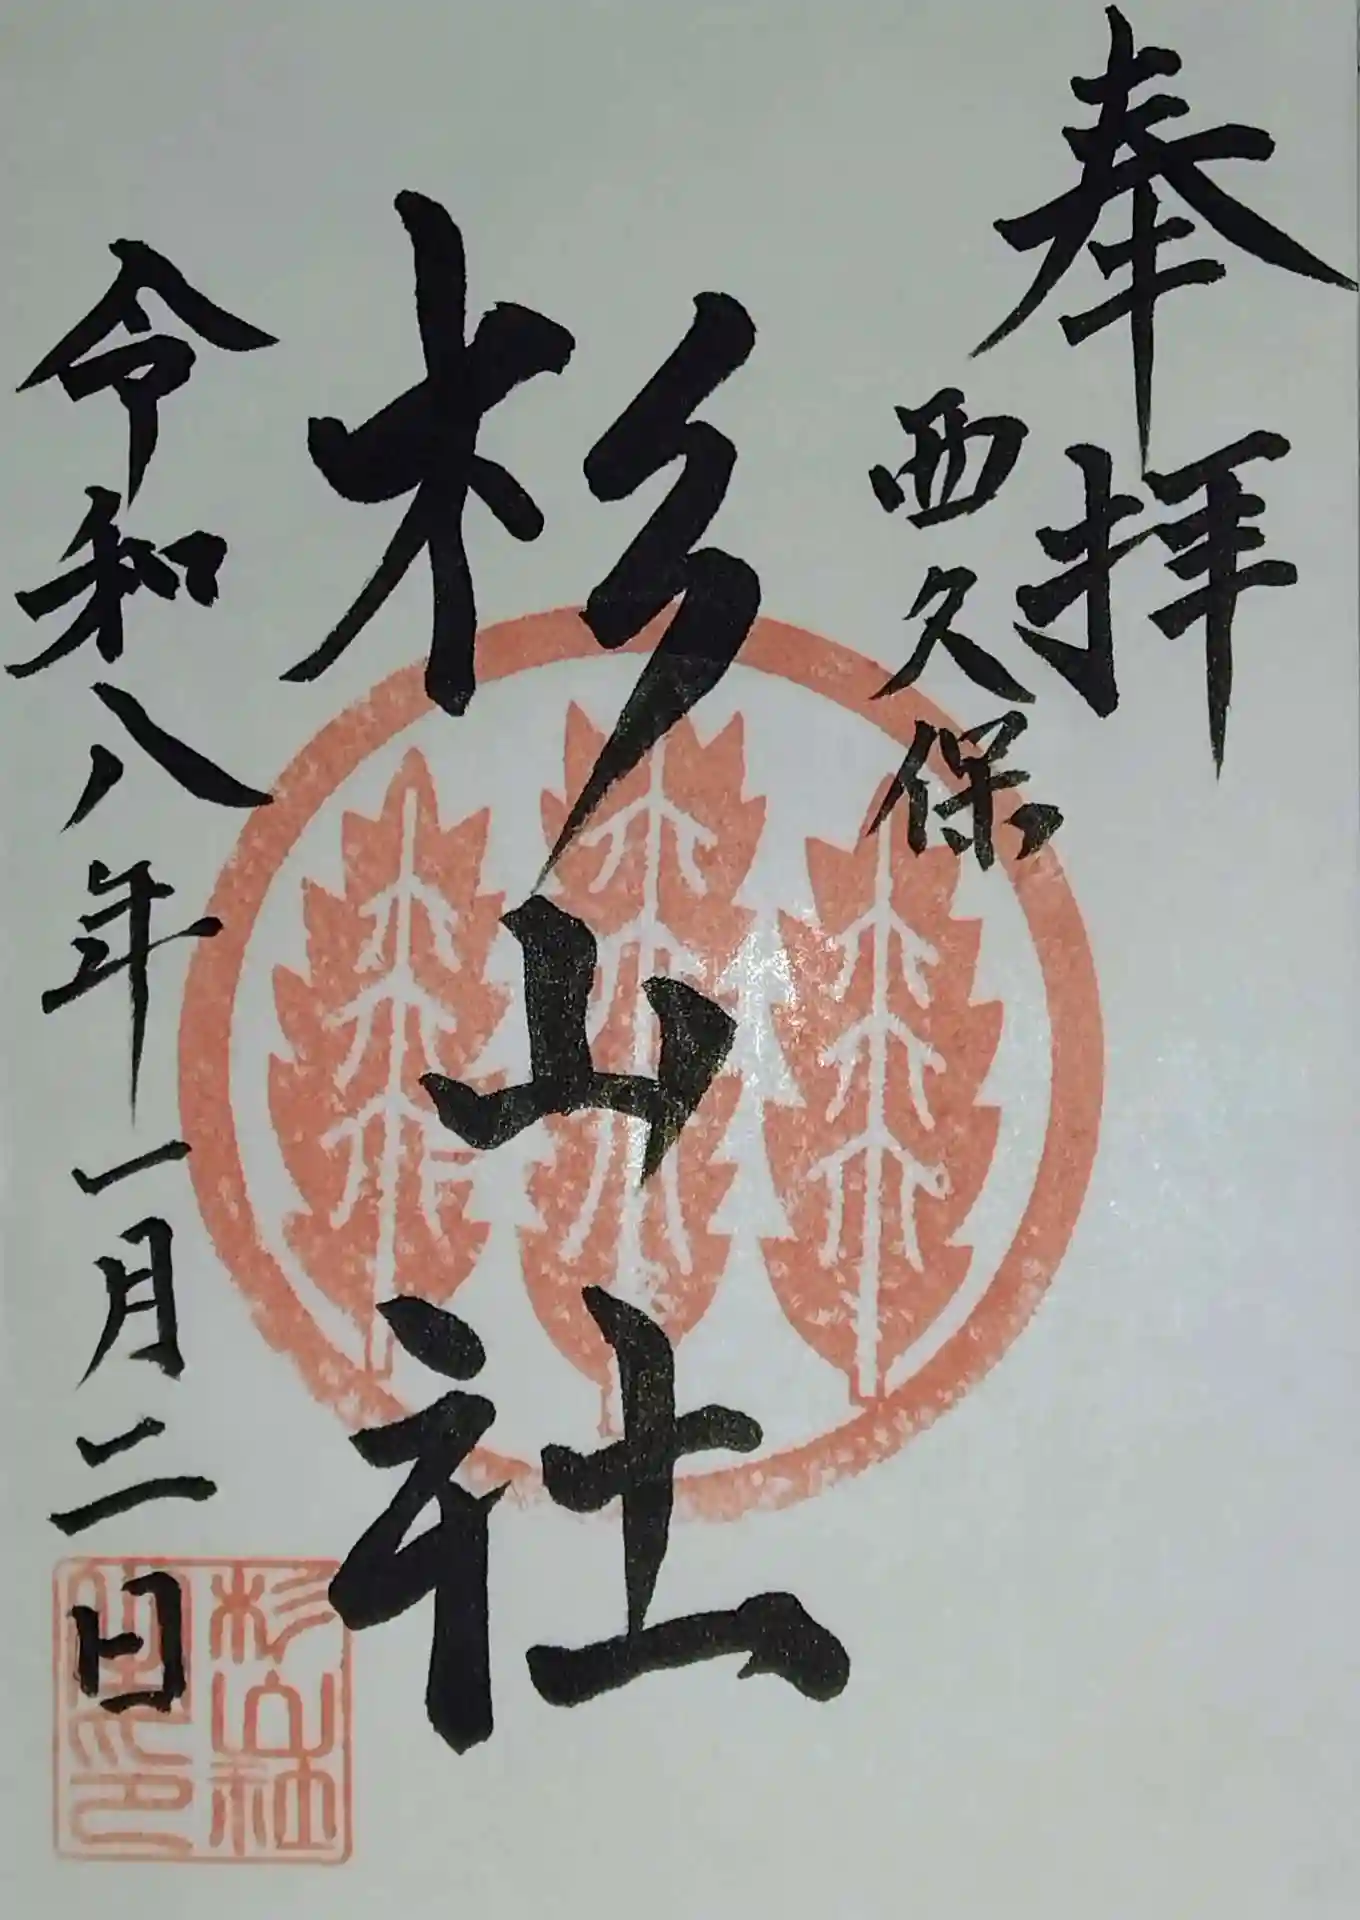 奉拝
西久保
杉山社
令和八年一月二日
杉山社